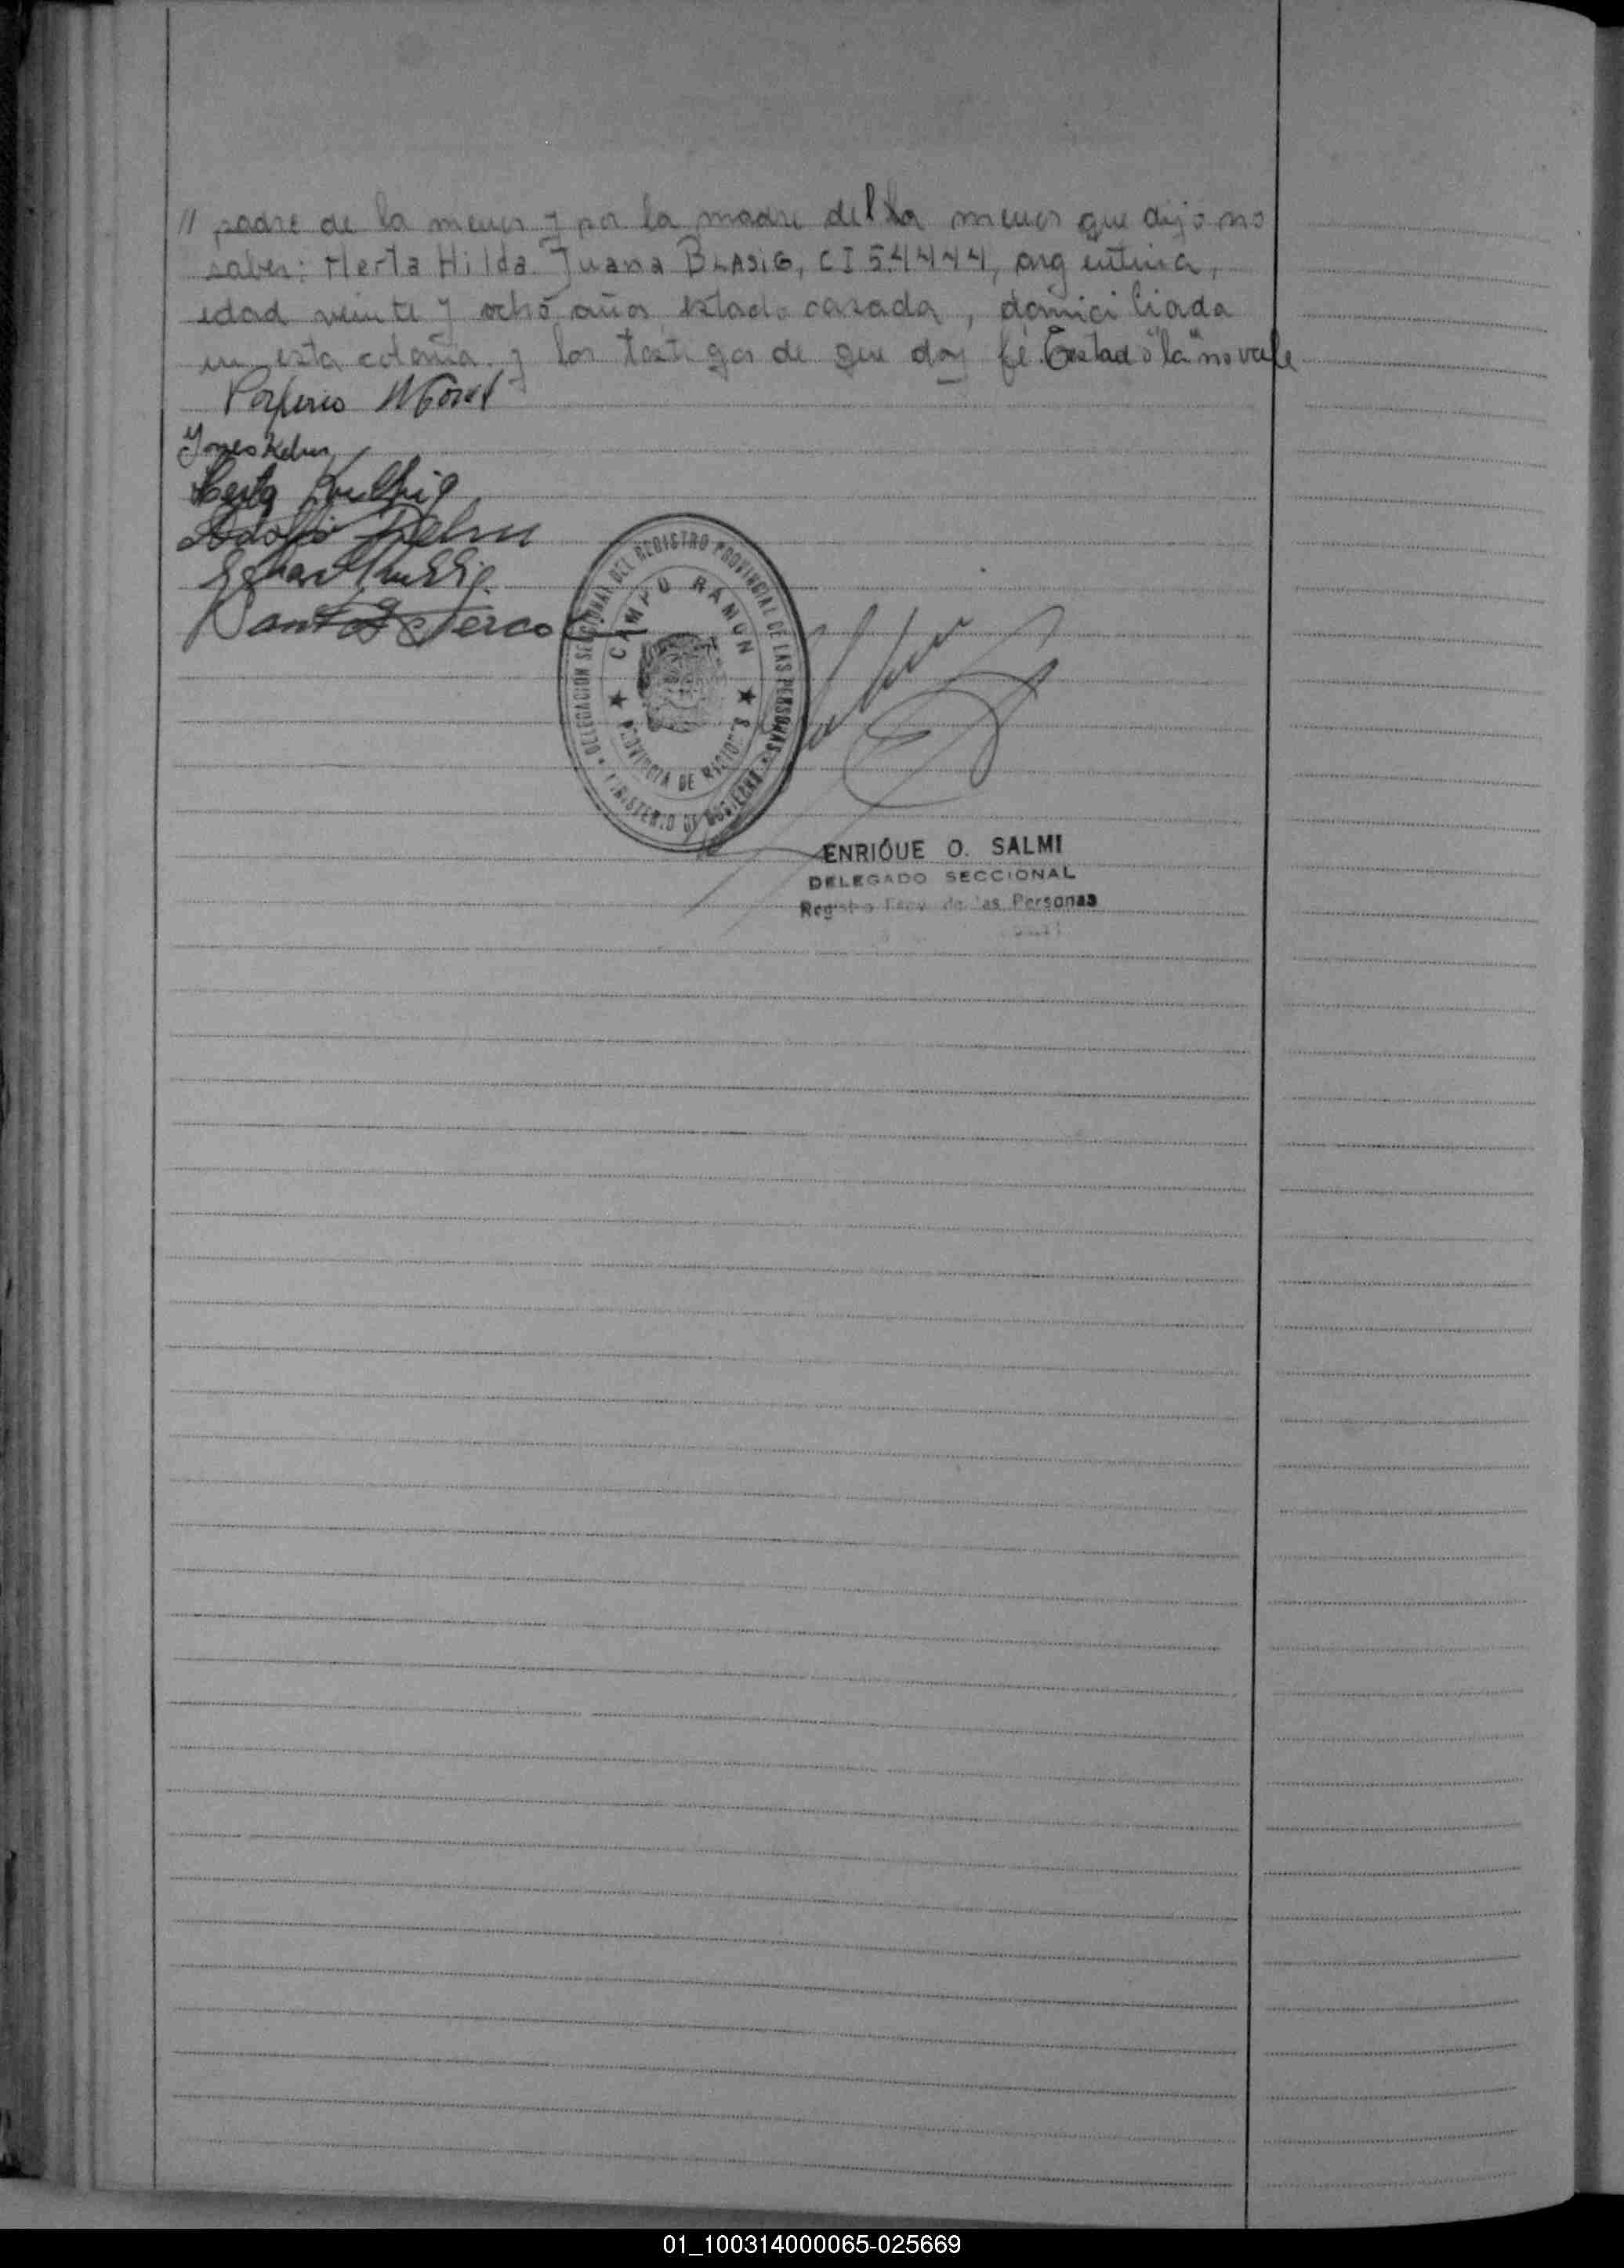 // padre de la menor y por la madre del la menor que dijo no
saber: Herta Hilda Juana BLASIG, CI 54444, argentina,
edad veinte y ocho años estado casada, domiciliada
en esta colonia y los testigos de que doy fé. Testado "la" no vale
Porfirio
Herta
Adolfo
Santos
DELEGACION SECCIONAL DEL REGISTRO PROVINCIAL DE LAS PERSONAS
CAMPO RAMON
PROVINCIA DE MISIONES
MINISTERIO DE GOBIERNO
ENRIQUE O. SALMI
DELEGADO SECCIONAL
Registro Prov. de las Personas
01_100314000065-025669